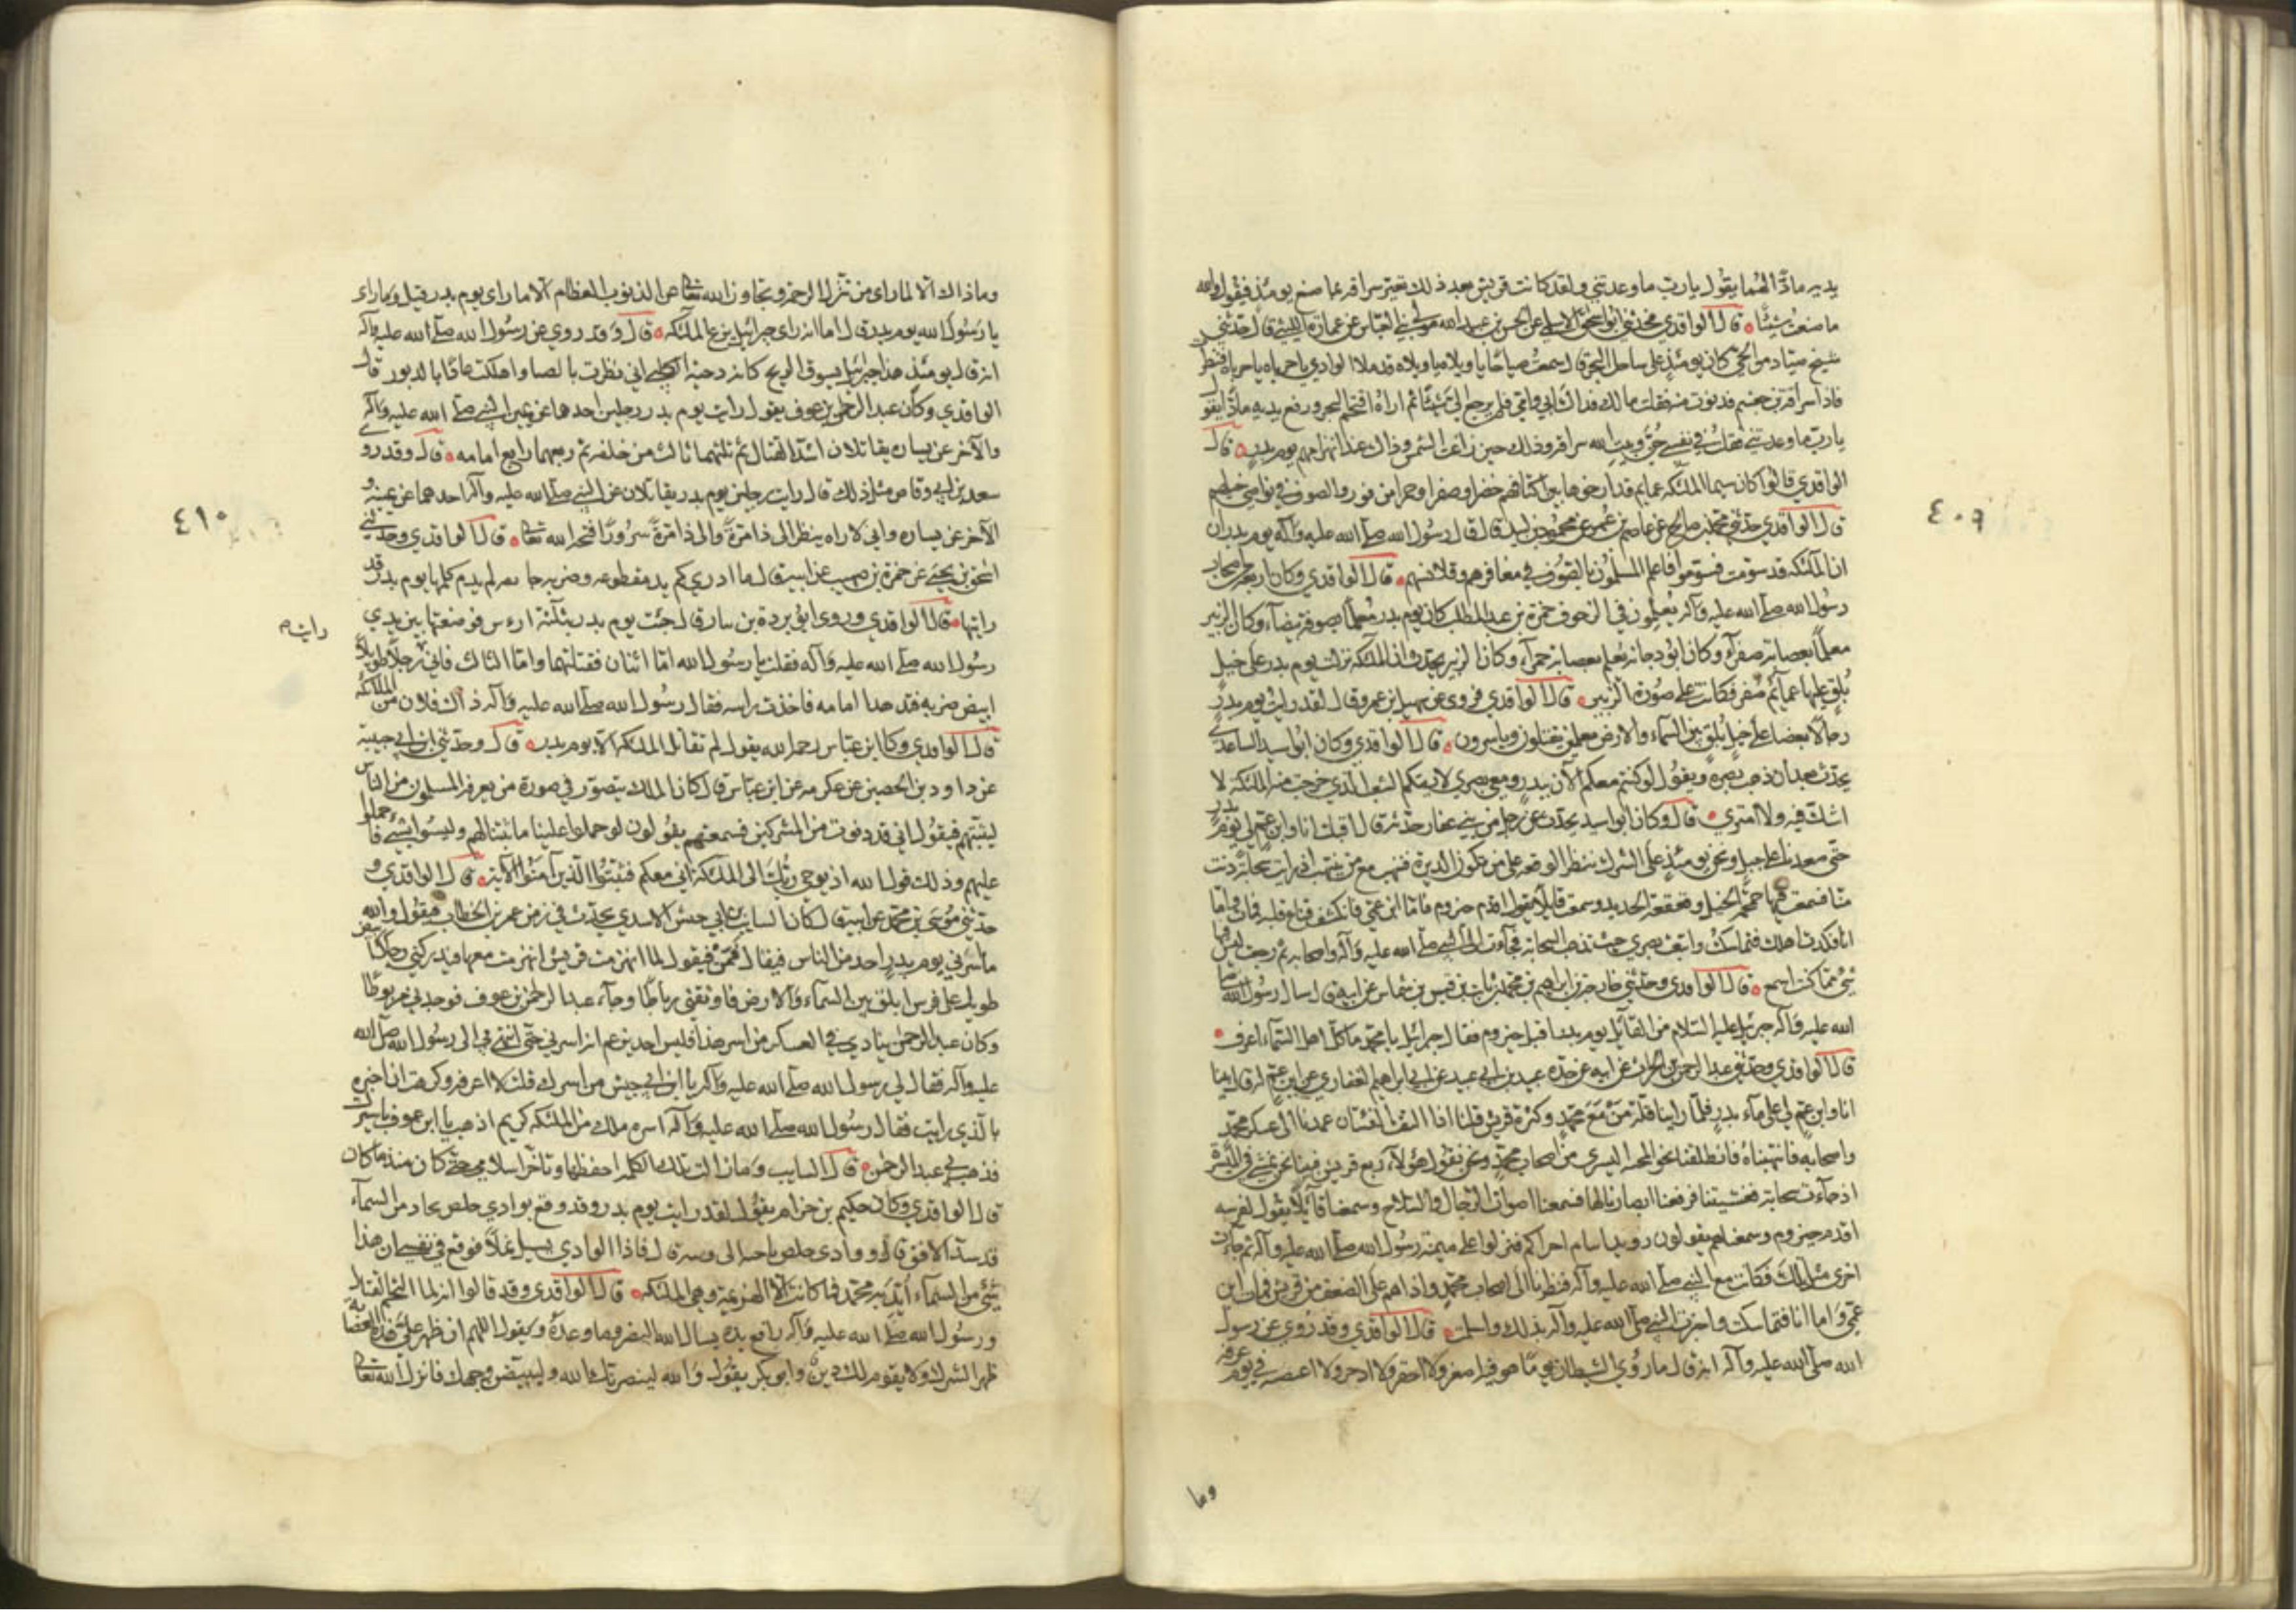 يديه مادّا لهما يقول يارب ما وعدتني ولقد كانت قريش بعد ذلك تعير سراقه بما صنع يومئذ فيقول والله
ما صنعت شيئا قال الواقدي فحدثني ابو اسحق الاسلمي عن الحسن بن عبيد الله مولى بني العباس عن عمارة الليثي قال حدثني
شيخ صياد من الحي كان يومئذ على ساحل البحر قال سمعت صياحا يا ويلاه يا ويلاه قد ملا الوادي يا حرباه يا حرباه فنظرت
فاذا سراقة بن جعشم فدنوت منه فقلت مالك فداك ابي وامي فلم يرجع الي شيئا ثم اراه اقتحم البحر ورفع يديه مادّا يقول
يا رب ما وعدتني فقلت في نفسي جن وبيت الله سراقه وذلك حين زاغت الشمس وذاك عند انهزامهم يوم بدر قال
الواقدي قالوا كان سيما الملئكه عمايم قد ارخوها بين اكتافهم خضرا وصفرا وحمرا من نور والصوف في نواصي خيلهم
قال الواقدي حدثني محمد بن صالح عن عاصم بن عمر عن محمود بن لبيد قال قال رسول الله صلى الله عليه وآله يوم بدر ان
ان الملئكه قد سومت فسوموا فاعلم المسلمون بالصوف في مغافرهم وقلانسهم قال الواقدي وكان اربعة من اصحاب
رسول الله صلى الله عليه وآله يعلمون في الزحوف حمزة بن عبد المطلب كان يوم بدر معلما بصوفة بيضاء وكان الزبير
معلما بعصابة صفراء وكان ابو دجانه يعلم بعصابة حمراء وكان الزبير يحدث ان الملئكه نزلت يوم بدر على خيل
بلق عليها عمائم صفر فكانت على صورة الزبير قال الواقدي فروى عن سهيل بن عمرو قال لقد رايت يوم بدر
رجالا بيضا على خيل بلق بين السماء والارض معلمين يقتلون وياسرون قال الواقدي وكان ابو اسيد الساعدي
يحدث بعد ان ذهب بصره ويقول لو كنتم معكم الآن ببدر ومعي بصري لاريتكم الشعب الذي خرجت منه الملئكه لا
اشك فيه ولا امتري قال وكان ابو اسيد يحدث عن رجل من بني غفار حدثه قال اقبلت انا وابن عم لي يوم بدر
حتى صعدنا على جبل ونحن يومئذ على الشرك ننظر الوقعه على من تكون الدبرة فننهب مع من ينتهب اذ رايت سحابة دنت
منا فسمعت فيها حمحمة الخيل وقعقعة الحديد وسمعت قايلا يقول اقدم حيزوم فاما ابن عمي فانكشف قناع قلبه فمات واما
انا فكدت اهلك فتماسكت واتبعت بصري حيث تذهب السحابة فجآءت الى النبي صلى الله عليه وآله واصحابه ثم رجعت ليس فيها
شئ مما كنت اسمع قال الواقدي وحدثني خارجة بن ابراهيم بن محمد بن ثابت بن قيس بن شماس عن ابيه قال سال رسول الله صلى
الله عليه وآله جبرئيل عليه السلام من القائل يوم بدر اقبل حيزوم فقال جبرائيل يا محمد ما كل اهل السماء اعرف
قال الواقدي وحدثني عبد الرحمن بن الحارث عن ابيه عن جده عبيد بن ابي عبيد عن ابي ابراهيم الغفاري عن ابن عم له قال بينا
انا وابن عم لي على ماء بدر فلما راينا قلة من مع محمد وكثرة قريش قلنا اذا التقت الفئتان عمدنا الى عسكر محمد
واصحابه فانتهبناه فانطلقنا نحو المجنبه اليسرى من اصحاب محمد ونحن نقول هؤلاء ربع قريش فبينا نحن نمشي في الميسرة
اذ جاءت سحابة فغشيتنا فرفعنا ابصارنا لها فسمعنا اصوات الرجال والسلاح وسمعنا قائلا يقول لفرسه
اقدم حيزوم وسمعناهم يقولون رويدا تتام اخراكم فنزلوا على ميمنة رسول الله صلى الله عليه وآله ثم جاءت
اخرى مثل تلك فكانت مع النبي صلى الله عليه وآله فنظرنا الى اصحاب محمد واذا هم على الضعف من قريش فمات ابن
عمي واما انا فتماسكت واخبرت النبي صلى الله عليه وآله بذلك واسلمت قال الواقدي وقد روي عن رسول
الله صلى الله عليه وآله انه قال ما رؤي الشيطان يوما هو فيه اصغر ولا احقر ولا ادحر ولا اغضب في يوم عرفه
وما
٤٠٩
وما ذاك الا لما راى من تنزل الرحمة وتجاوز الله تعالى عن الذنوب العظام الا ما راى يوم بدر قيل وما راى
يا رسول الله يوم بدر قال اما انه راى جبرائيل يزع الملئكه قال وقد روي عن رسول الله صلى الله عليه وآله
انه قال يومئذ هذا جبرئيل يسوق الريح كانه دحية الكلبي اني نصرت بالصبا واهلكت عاد بالدبور قال
الواقدي وكان عبد الرحمن بن عوف يقول رايت يوم بدر رجلين احدهما عن يمين النبي صلى الله عليه وآله
والآخر عن يساره يقاتلان اشد القتال ثم ثلثهما ثالث من خلفه ثم ربعهما رابع امامه قال وقد روى
سعد بن ابي وقاص مثل ذلك قال رايت رجلين يوم بدر يقاتلان عن النبي صلى الله عليه وآله احدهما عن يمينه و
الآخر عن يساره واني لاراه ينظر الى ذا مرة والى ذا مرة سرورا بما فتحه الله تعالى قال الواقدي وحدثني
اسحق بن يحيى عن حمزة بن صهيب عن ابيه قال ما ادري كم يد مقطوعه وضربة جايفه لم يدم كلمها يوم بدر قد
رايتها قال الواقدي وروى ابو بردة بن نيار قال جئت يوم بدر بثلثة ارءس فوضعتها بين يدي
رسول الله صلى الله عليه وآله فقلت يا رسول الله اما اثنان فقتلتهما واما الثالث فاني رجلا طويلا
رايت
ابيض ضربه فتدهدا امامه فاخذت راسه فقال رسول الله صلى الله عليه وآله ذاك فلان من الملائكه
قال الواقدي وكان ابن عباس رحمه الله يقول لم تقاتل الملئكه الا يوم بدر قال وحدثني ابن ابي حبيبة
عن داود بن الحصين عن عكرمه عن ابن عباس قال كان الملك يتصور في صورة من يعرفه المسلمون من الناس
ليثبتهم فيقول اني قد دنوت من المشركين فسمعتهم يقولون لو حملوا علينا ما ثبتنا لهم وليسوا بشئ فاحملوا
عليهم وذلك قول الله اذ يوحي ربك الى الملئكة اني معكم فثبتوا الذين آمنوا الآية قال الواقدي و
حدثني موسى بن محمد عن ابيه قال كان السايب بن ابي حبيش الاسدي يحدث في زمن عمر بن الخطاب فيقول والله
ما اسرني يوم بدر احد من الناس فيقال فمن فيقول لما انهزمت قريش انهزمت معها فيدركني رجل ابيض
طويل على فرس ابلق بين السماء والارض فاوثقني رباطا وجاء عبد الرحمن بن عوف فوجدني مربوطا
وكان عبد الرحمن ينادي في العسكر من اسر هذا فليس احد يزعم انه اسرني حتى انتهى بي الى رسول الله صلى الله
عليه وآله فقال لي رسول الله صلى الله عليه وآله يا ابن ابي حبيش من اسرك قلت لا اعرفه وكرهت ان اخبره
بالذي رايت فقال رسول الله صلى الله عليه وآله اسره ملك من الملئكه كريم اذهب يا ابن عوف باسيرك
فذهب بي عبد الرحمن قال السايب وما زالت تلك الكلمه احفظها وتاخر اسلامي حتى كان منه ما كان
قال الواقدي وكان حكيم بن حزام يقول لقد رايت يوم بدر وقد وقع بوادي خلص بجاد من السماء
قد سد الافق قال ووادي خلص ناحية الرويثة قال فاذا الوادي يسيل نملا فوقع في نفسي ان هذا
شئ من السماء ايد به محمد فما كانت الا الهزيمة وهي الملئكه قال الواقدي وقد قالوا انه لما التحم القتال
ورسول الله صلى الله عليه وآله رافع يديه يسال الله النصر وما وعده ويقول اللهم ان ظهر على هذه العصابه
ظهر الشرك ولا يقوم لك دين وابو بكر يقول والله لينصرنك الله وليبيضن وجهك فانزل الله تعالى
٤١٠